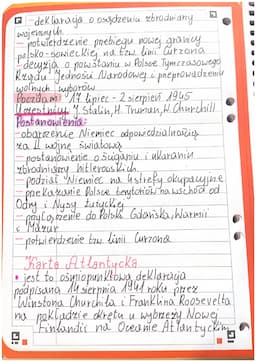 - deklaracja o osądzeniu zbrodniarzy
wojennych
- potwierdzenie przebiegu nowej granicy
polsko-sowieckiej na tzw. linii Curzona
- decyzja o powstaniu w Polsce Tymczasowego
Rządu Jedności Narodowej i przeprowadzeniu
wolnych wyborów
Poczdam: 17 lipiec - 2 sierpień 1945
Uczestnicy: J. Stalin, H. Truman, W. Churchill
Postanowienia:
- obarczenie Niemiec odpowiedzialnością
za II wojnę światową
- postanowienie o ściganiu i ukaraniu
zbrodniarzy hitlerowskich
- podział Niemiec na 4 strefy okupacyjne
- przekazanie Polsce terytoriów na wschód od
Odry i Nysy Łużyckiej
- przyłączenie do Polski Gdańska, Warmii
i Mazur
- potwierdzenie tzw. linii Curzona
Karta Atlantycka
• jest to ośmiopunktowa deklaracja
podpisana 14 sierpnia 1941 roku przez
Winstona Churchilla i Franklina Roosevelta
na pokładzie okrętu u wybrzeży Nowej
Finlandii na Oceanie Atlantyckim